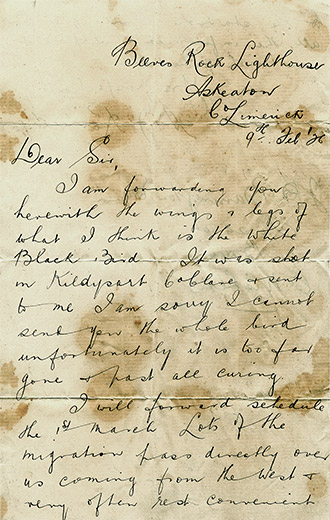 Beeves Rock Lighthouse
Askeaton
Co Limerick
9th Feb '26
Dear Sir,
I am forwarding you
herewith the wings & legs of
what I think is the White
Black Bird. It was shot
in Kildysart Co Clare & sent
to me I am sorry I cannot
send you the whole bird
unfortunately it is too far
gone & past all curing.
I will forward schedule
the 1st March Lots of the
migration pass directly over
us coming from the West &
very often rest convenient